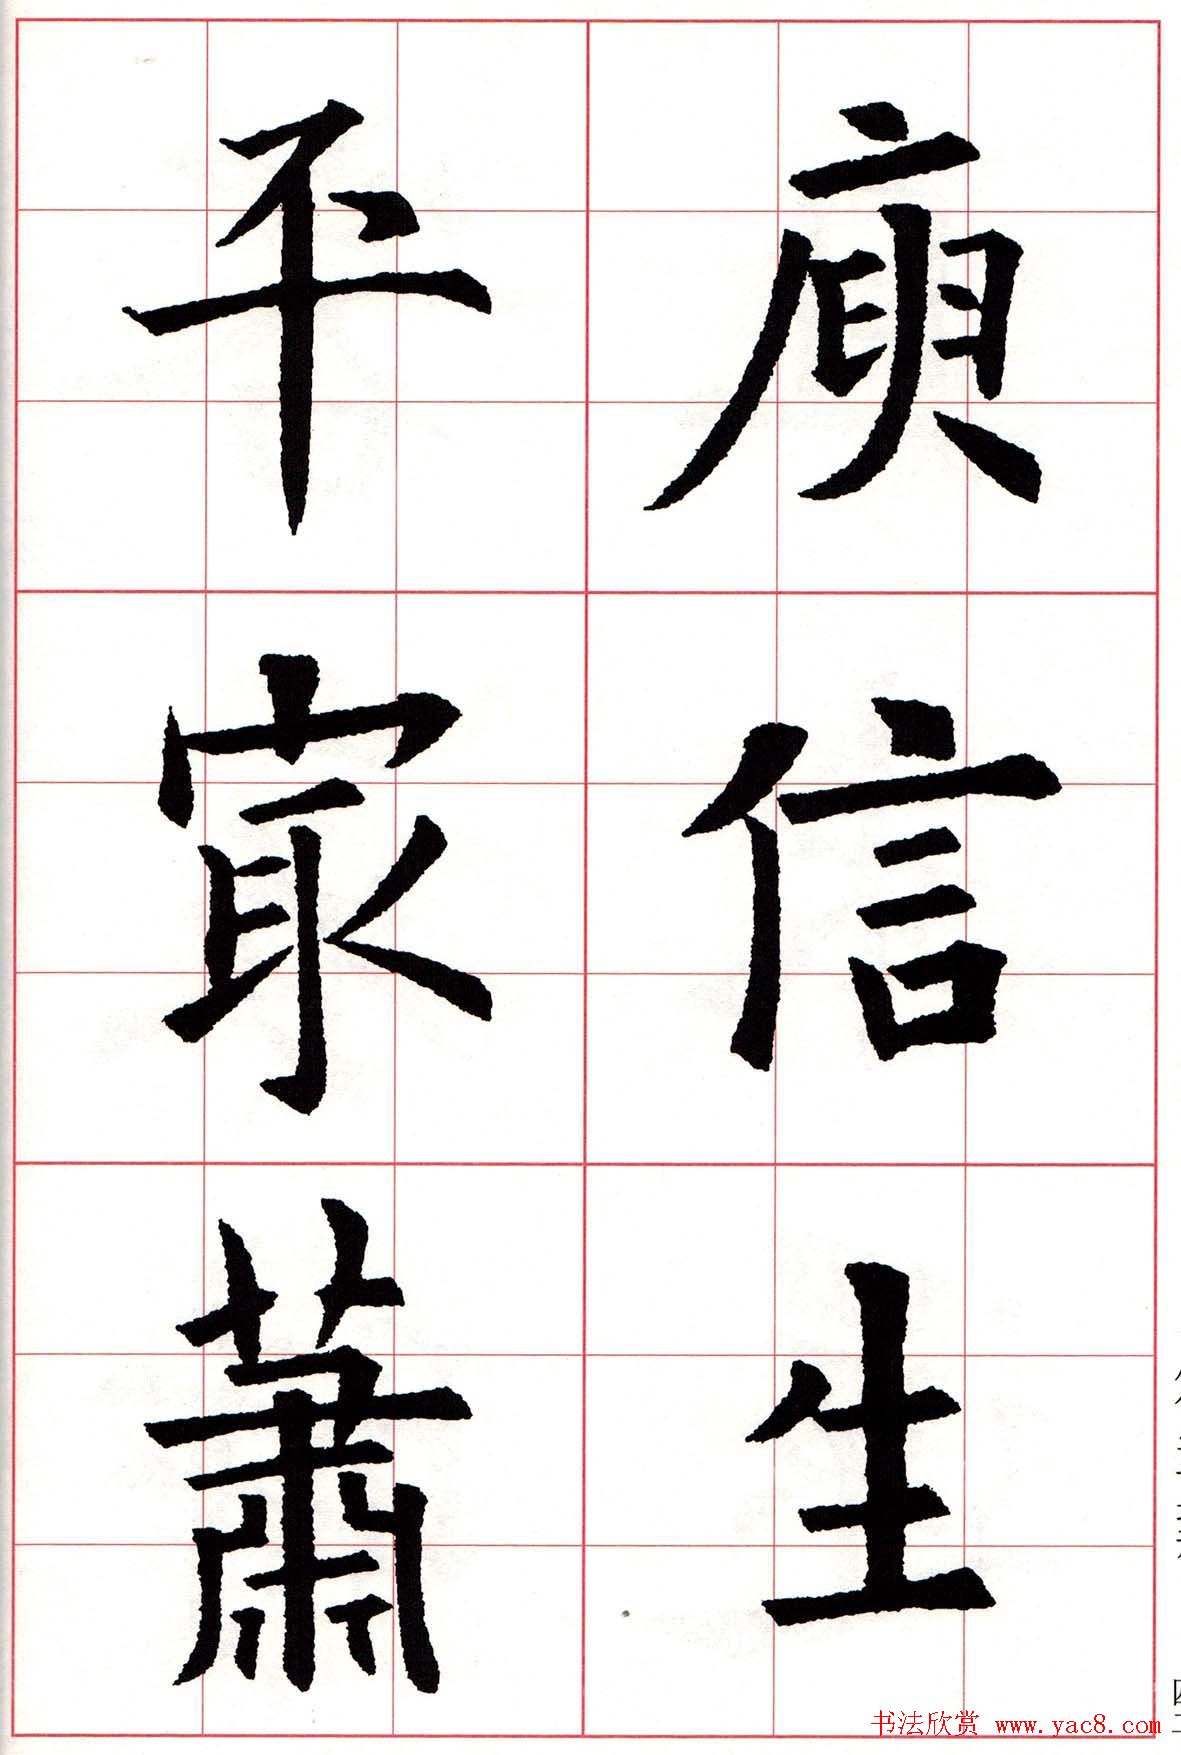 庾信生
平㝡蕭
书法欣赏 www.yac8.com